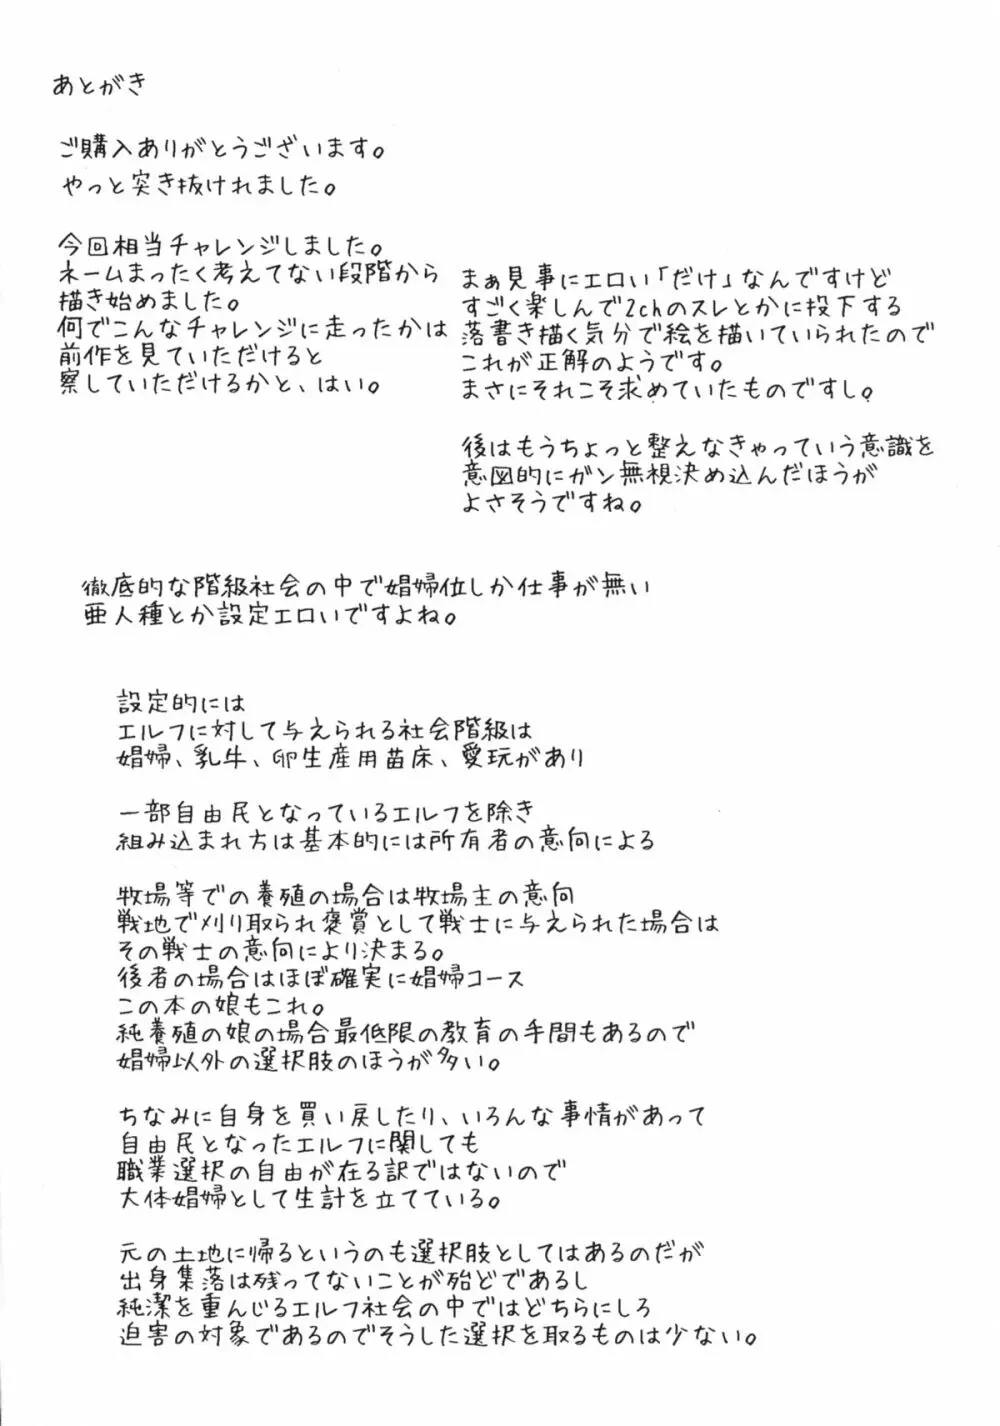 あとがき
ご購入ありがとうございます。
やっと突き抜けれました。
今回相当チャレンジしました。
ネームまったく考えてない段階から
描き始めました。
何でこんなチャレンジに走ったかは
前作を見ていただけると
察していただけるかと、はい。
まぁ見事にエロい「だけ」なんですけど
すごく楽しんで2chのスレとかに投下する
落書き描く気分で絵を描いていられたので
これが正解のようです。
まさにそれこそ求めていたものですし。
後はもうちょっと整えなきゃっていう意識を
意図的にガン無視決め込んだほうが
よさそうですね。
徹底的な階級社会の中で娼婦位しか仕事が無い
亜人種とか設定エロいですよね。
設定的には
エルフに対して与えられる社会階級は
娼婦、乳牛、卵生産用苗床、愛玩があり
一部自由民となっているエルフを除き
組み込まれ方は基本的には所有者の意向による
牧場等での養殖の場合は牧場主の意向
戦地で刈り取られ褒賞として戦士に与えられた場合は
その戦士の意向により決まる。
後者の場合はほぼ確実に娼婦コース
この本の娘もこれ。
純養殖の娘の場合最低限の教育の手間もあるので
娼婦以外の選択肢のほうが多い。
ちなみに自身を買い戻したり、いろんな事情があって
自由民となったエルフに関しても
職業選択の自由が在る訳ではないので
大体娼婦として生計を立てている。
元の土地に帰るというのも選択肢としてはあるのだが
出身集落は残ってないことが殆どであるし
純潔を重んじるエルフ社会の中ではどちらにしろ
迫害の対象であるのでそうした選択を取るものは少ない。